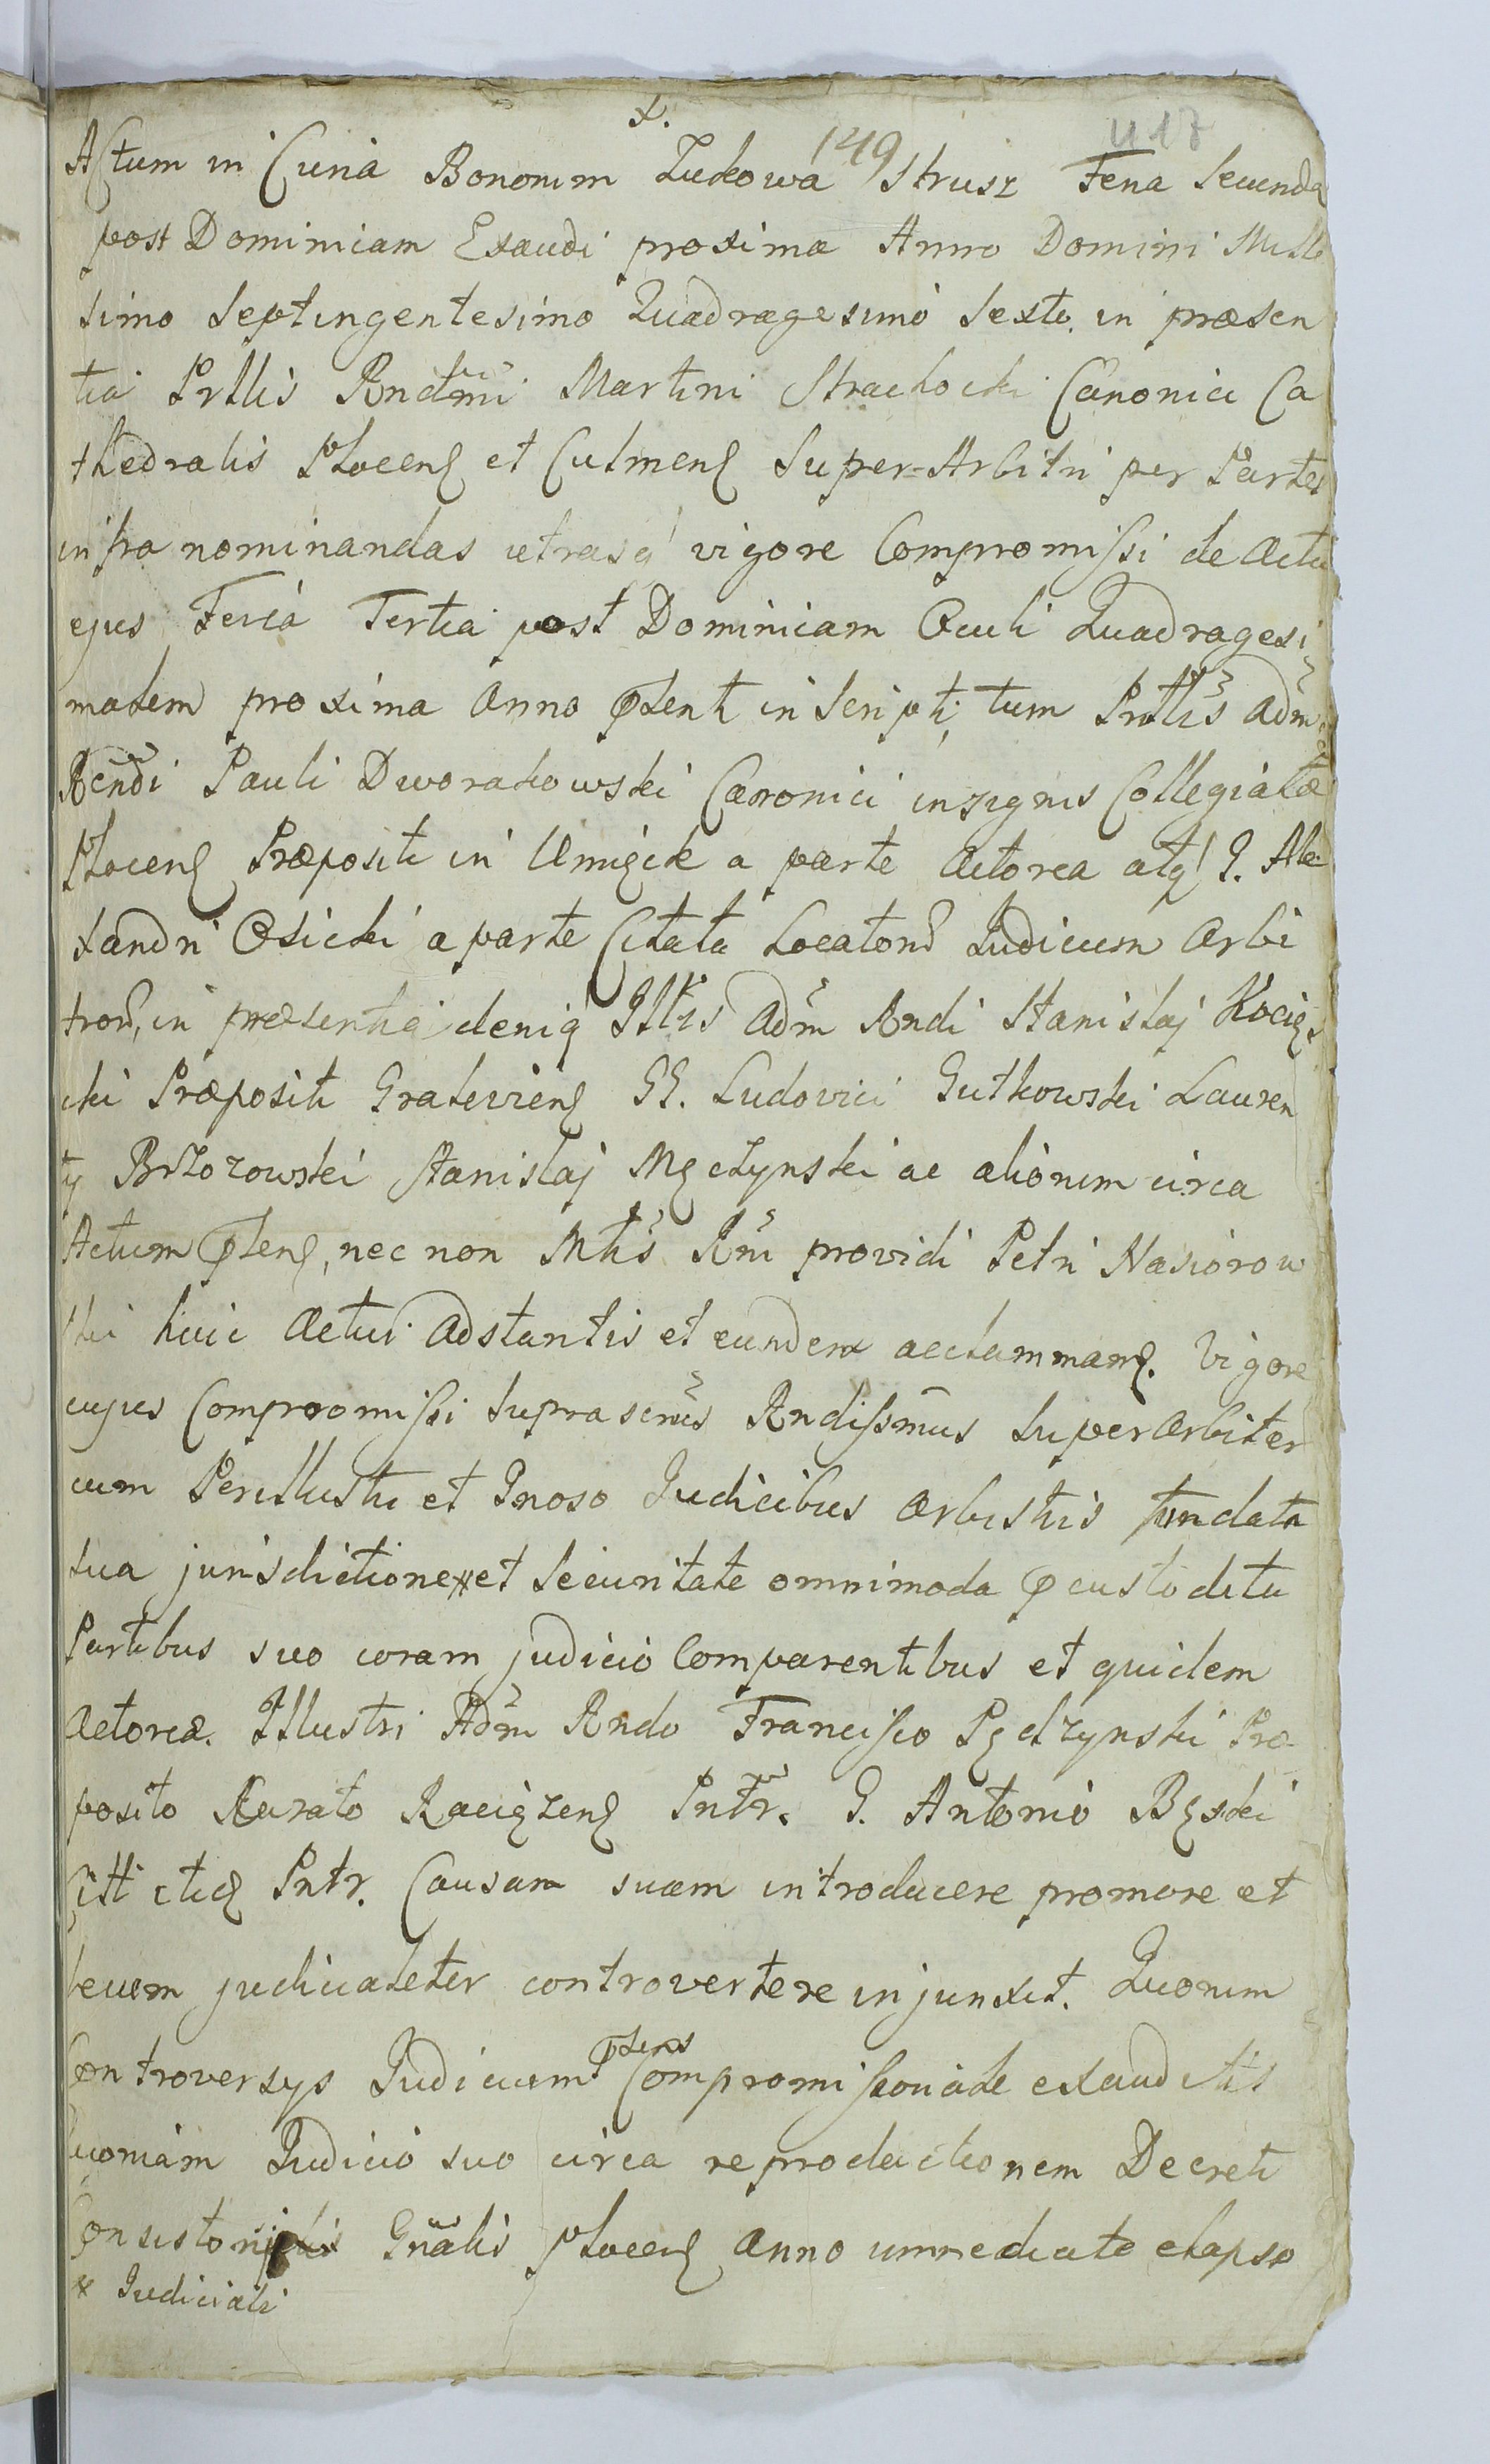 x.
149
417
Actum in Curia Bonorum Zukowa Strusz Feria Secunda
post Dominicam Exaudi proxima Anno Domini Mille
simo Septingentesimo Quadragesimo Sexto in præsen
tia Prllis Rndmi Martini Strachocki Canonici Ca
thedralis Plocens et Culmens Super=Arbitri per Partes
infra nominandas utrasq vigore Compromissi de actu
ejus Feria Tertia post Dominicam Oculi Quadragesi
malem proxima Anno Psenti inscripti, tum Prllis adm
Rendi Pauli Dworakowski Canonici insignis Collegiatæ
Plocens Præpositi in Unnigck a parte actorea atq G. Ale
xandri Osicki a parte Citata Locatorum Judicum Arbi
tror, in præsentia deniq Illris adm Rndi Stanislaj Kocię
cki Præpositi Graleviens GG. Ludovici Gutkowski Lauren
ty Brzozowski Stanislaj Męczynski ac aliorum circa
Actum Psens, nec non Mtis Rni providi Petri Nasiorow
ski huic actui adstantis et eundem acclammans. Vigore
cujus Compromissi supra scrius Rndissmus Superarbiter
cum Perillustri et Gnoso Judicibus Arbistris fundata
sua jurisdictione x et Securitate omnimoda Pcustodita
Partibus suo coram judicio Comparentibus et quidem
Actorea. Illustri Adm Rndo Francisco Pędzynski Præ
posito Curato Raciązens Pntr. G. Antonio Bęski
Citt itidę Pntr. Causam suam introducere promore et
secum judicialeter controvertere injunxit. Quorum
Controversys Judicium Psens Compromissionale exauditis
quoniam Judicio suo circa reproductionem Decreti
Consistorialis Gnalis Plocens Anno immediate elapso
x Judiciali